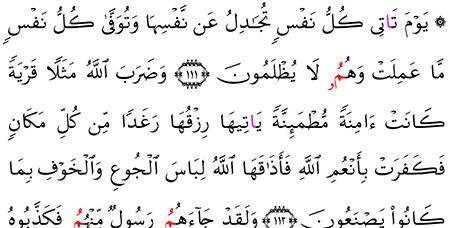 ۞ يَوْمَ تَاتِى كُلُّ نَفْسٖ تُجَٰدِلُ عَن نَّفْسِهَا وَتُوَفّ۪ىٰ كُلُّ نَفْسٖ
مَّا عَمِلَتْ وَهُمُۥ لَا يُظْلَمُونَ ۝١١١ وَضَرَبَ اَللَّهُ مَثَلًا قَرْيَةٗ
كَانَتَ اٰمِنَةٗ مُّطْمَئِنَّةٗ يَاتِيهَا رِزْقُهَا رَغَدٗا مِّن كُلِّ مَكَانٖ
فَكَفَرَتْ بِأَنْعُمِ اِللَّهِ فَأَذَٰقَهَا اَللَّهُ لِبَاسَ اَلْجُوعِ وَالْخَوْفِ بِمَا
كَانُواْ يَصْنَعُونَ ۝١١٢ وَلَقَدْ جَآءَهُمُ رَسُولٞ مِّنْهُمُ فَكَذَّبُوهُ